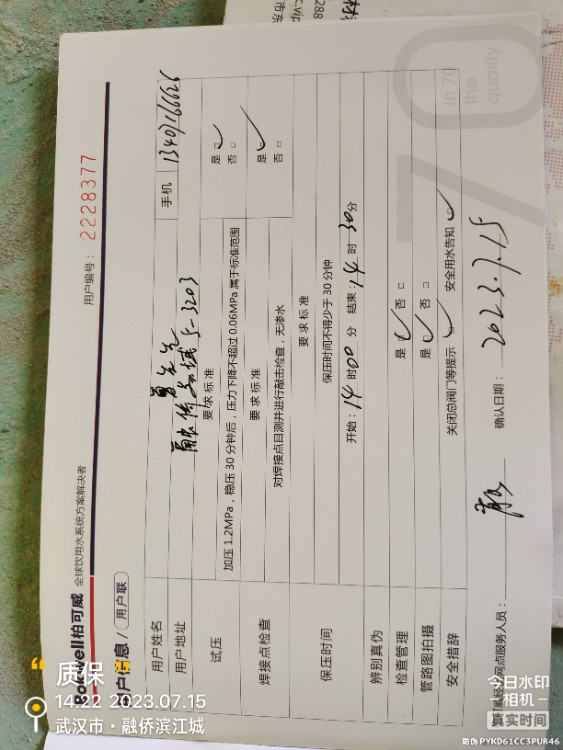 Rockwell柏可威 全球饮用水系统方案解决者
用户编号： 2228377
用户信息/ 用户联
用户姓名
手机
用户地址 融侨 城 5-3203
要求标准
试压 加压1.2MPa，稳压30分钟后，压力下降不超过0.06MPa属于标准范围 是 ✓ 否 □
要求标准
焊接点检查 对焊接点目测并进行敲击检查，无渗水 是 ✓ 否 □
要求标准
保压时间 保压时间不得少于30分钟
开始：14 时 00 分 结束：14 时 30 分
辨别真伪
检查管理 是 ✓ 否 □
管路图拍摄 是 ✓ 否 □
安全措辞 关闭总阀门等提示 ✓ 安全用水告知 ✓
网点服务人员：
确认日期： 2023.7.15
70
in 70
the
quality
288
c.vip
质保
14:22 2023.07.15
武汉市·融侨滨江城
今日水印
相机
真实时间
防伪 PYKD61CC3PUR46